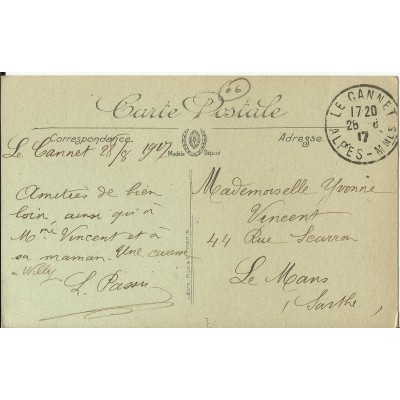 66
Carte Postale
Correspondance
Modèle Déposé
Adresse
LE CANNET
17-20
26 8
17
ALPES-MMES
Le Cannet 28/8 1917
Amitiés de bien
loin, ainsi qu'à
Mme Vincent et à
sa maman. Une caresse
à Willy
L.
Mademoiselle Yvonne
Vincent
44 Rue Scarron
Le Mans
(Sarthe)